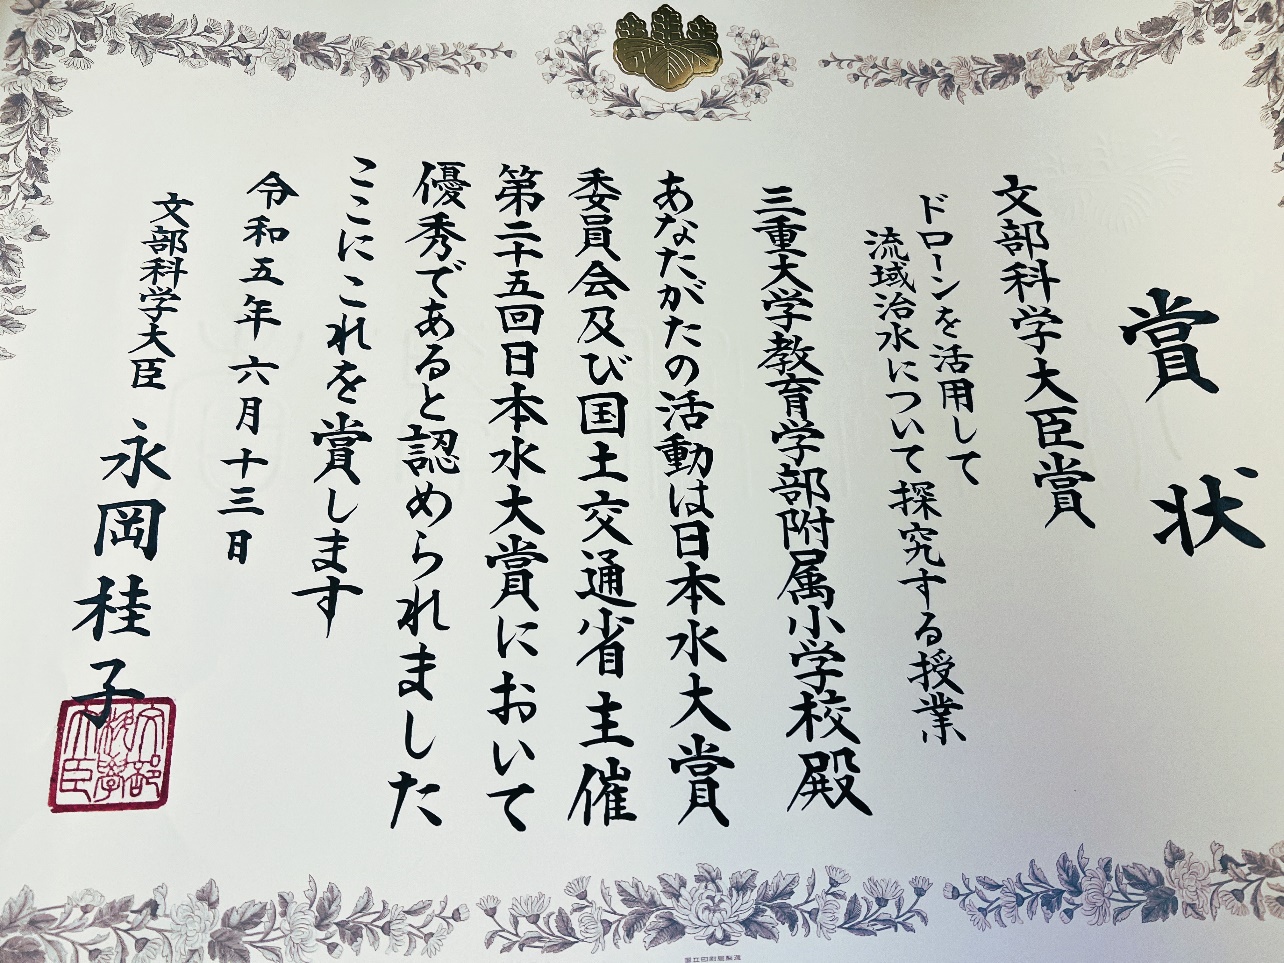 賞状
文部科学大臣賞
ドローンを活用して
流域治水について探究する授業
三重大学教育学部附属小学校殿
あなたがたの活動は日本水大賞
委員会及び国土交通省主催
第二十五回日本水大賞において
優秀であると認められました
ここにこれを賞します
令和五年六月十三日
文部科学大臣 永岡桂子
文部
科学
大臣